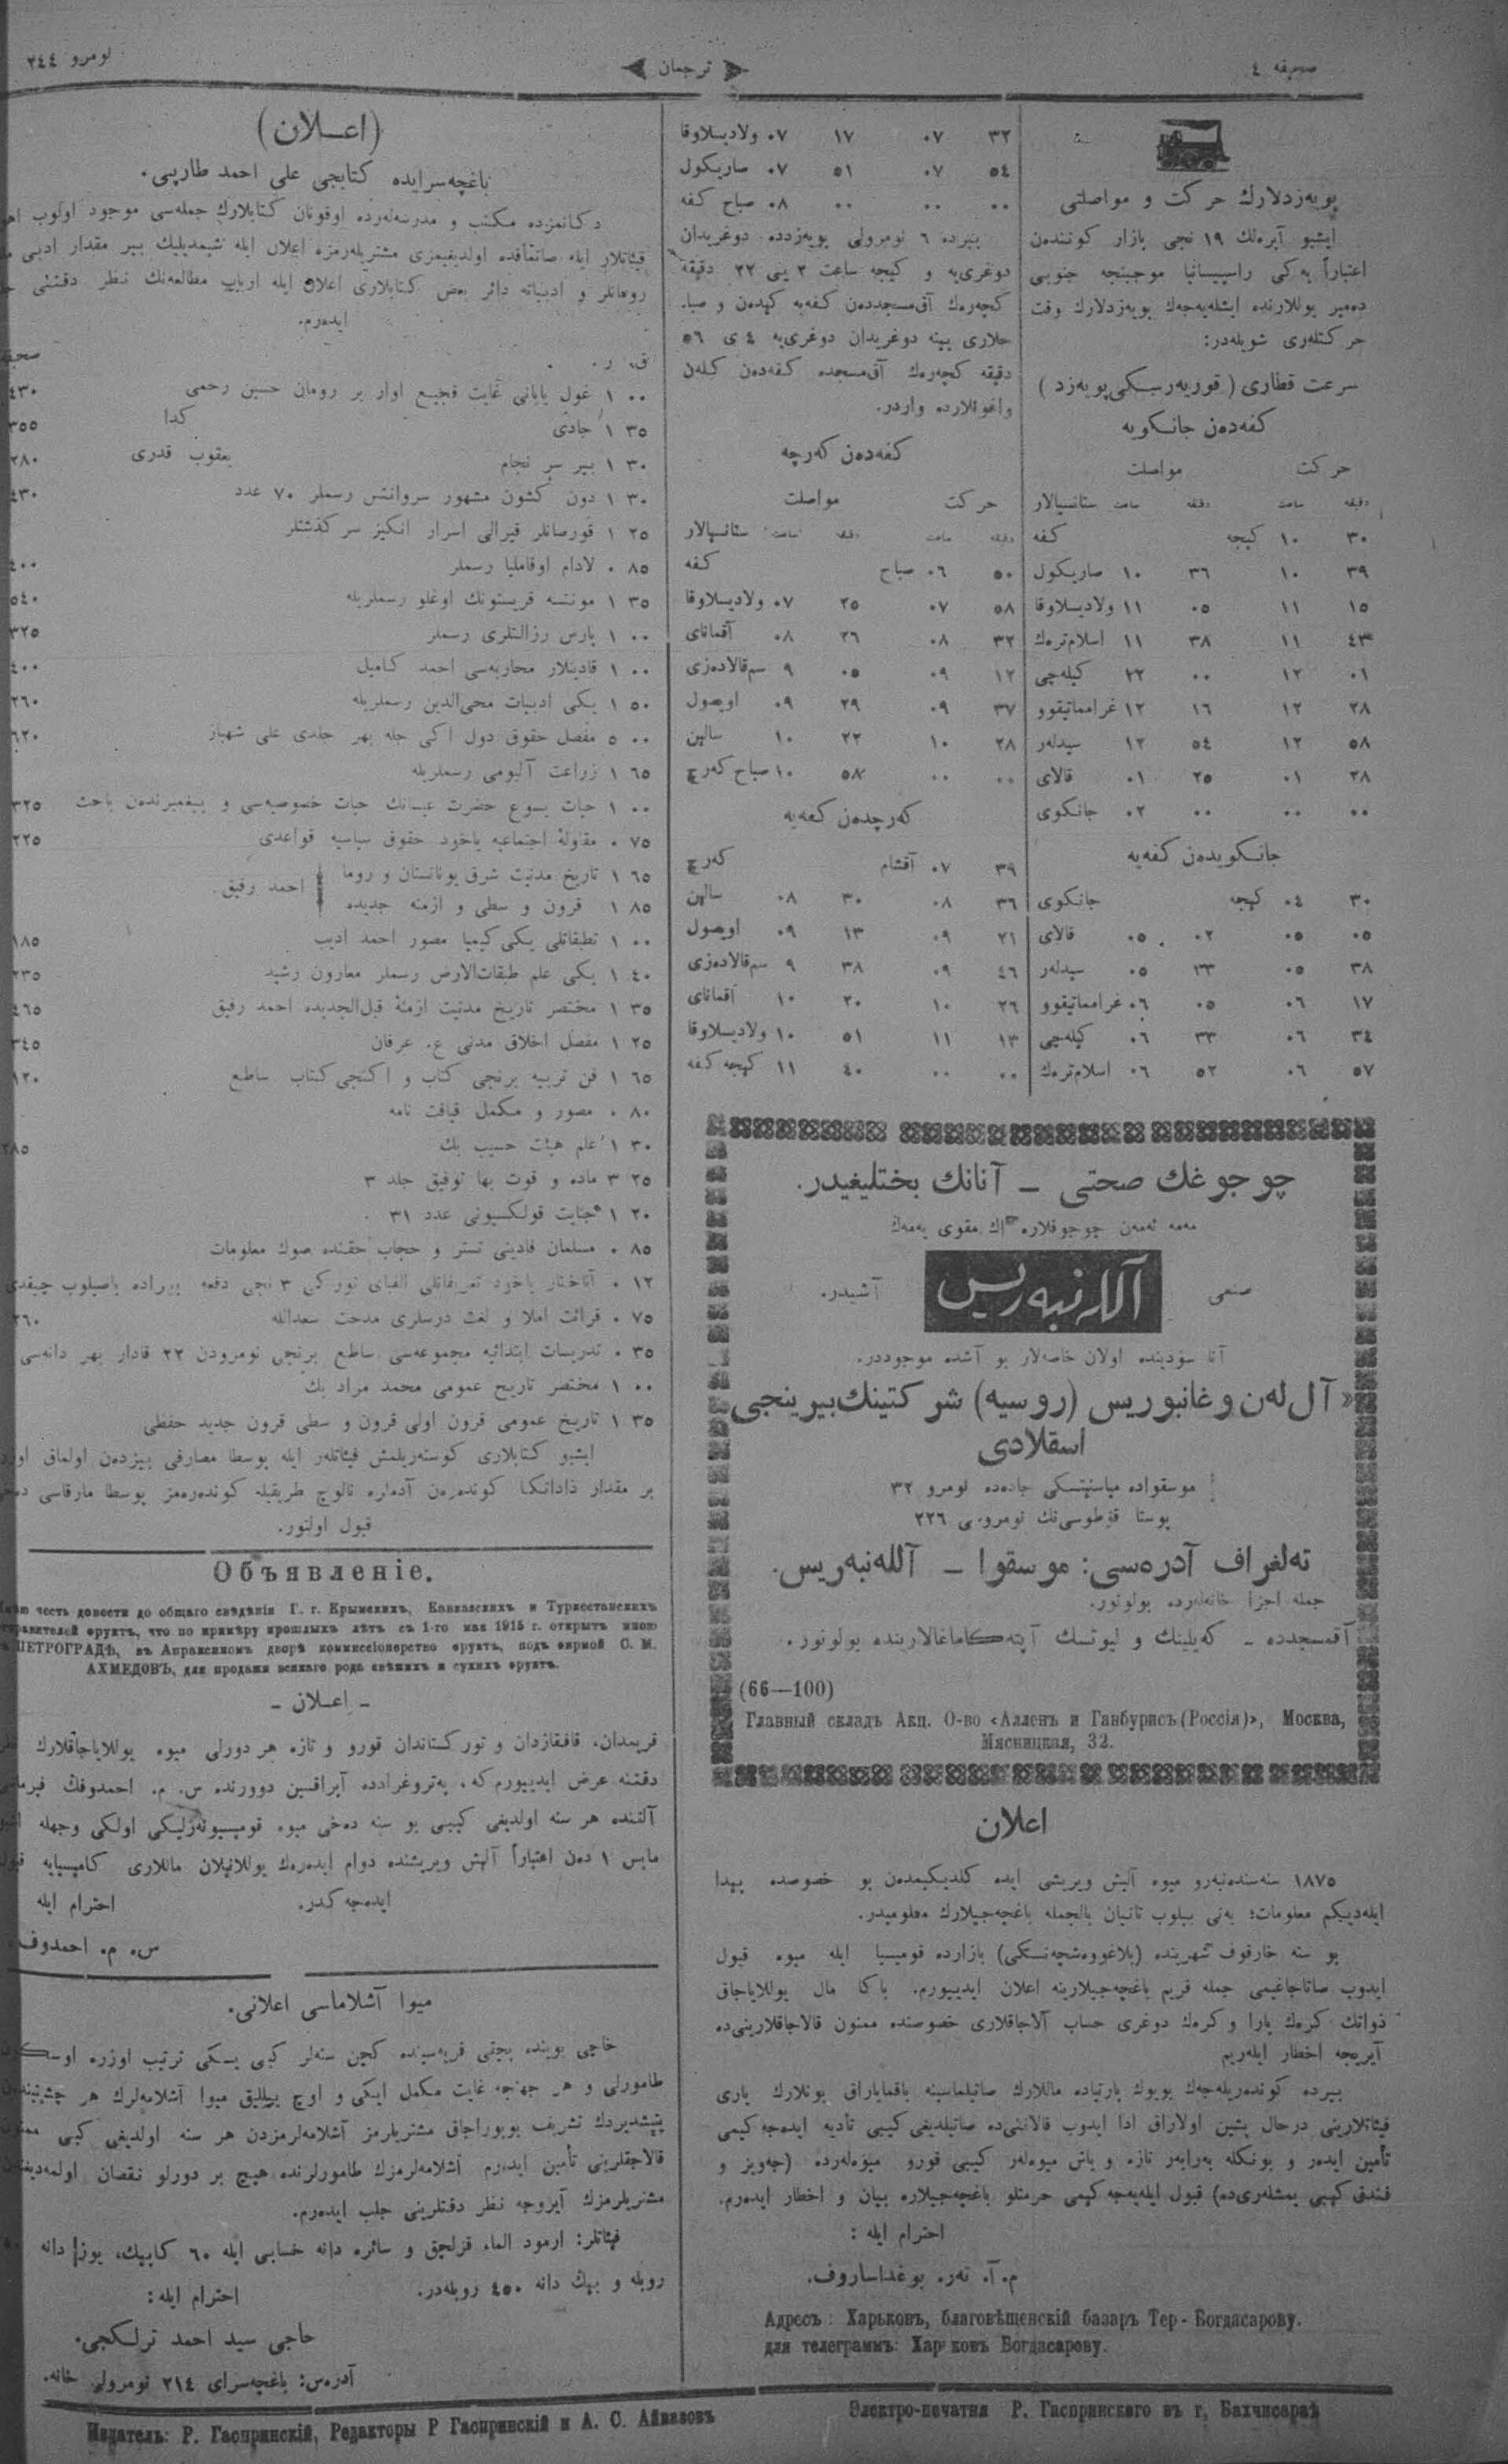 صحیفه ٤
ترجمان
نومرو ٢٤٤
پویه‌زدلارك حركت و مواصلتی
ایشبو آیره‌لك ١٩ نجی بازار كونندن
اعتباراً یه‌كی راسپیسانیا موجبنجه جنوبی
ده‌میر یوللارنده ایشله‌یه‌جه‌ك پویه‌زدلارك وقت
حركتله‌ری شویله‌در:
سرعت قطاری (قوریه‌رسكی پویه‌زد)
كفه‌ده‌ن جانكویه
حركت مواصلت
دقیقه ساعت دقیقه ساعت ستانسیالار
٣٠ ١٠ كیجه كفه
٣٩ ١٠ ٣٦ ١٠ صاریكول
١٥ ١١ ٠٥ ١١ ولادیسلاوقا
٤٣ ١١ ٣٨ ١١ اسلام‌تره‌ك
٠١ ١٢ ٠٠ ٢٢ كیله‌چی
٢٨ ١٢ ١٦ ١٢ غرامماتیقوو
٥٨ ١٢ ٥٤ ١٢ سیدلەر
٢٨ ٠١ ٢٥ ٠١ قالای
٠٠ ٠٠ ٠٠ ٠٢ جانكوی
جانكویده‌ن كفه‌یه
٣٠ ٠٤ كیجه جانكوی
٠٥ ٠٥ ٠٢ ٠٥ قالای
٣٨ ٠٥ ٣٣ ٠٥ سیدلەر
١٧ ٠٦ ٠٥ ٠٦ غرامماتیقوو
٣٤ ٠٦ ٣٣ ٠٦ كیله‌چی
٥٧ ٠٦ ٥٢ ٠٦ اسلام‌تره‌ك
٣٢ ٠٧ ١٧ ٠٧ ولادیسلاوقا
٥٤ ٠٧ ٥١ ٠٧ صاریكول
٠٠ ٠٠ ٠٠ ٠٨ صباح كفه
بیرده ٦ نومرولی پویه‌زدده دوغریدان
دوغری‌یه و كیجه ساعت ٢ یی ٢٢ دقیقه
كچه‌رك آق‌مسجددن كفه‌یه كیده‌ن و صبا-
حلاری یینه دوغریدان دوغری‌یه ٤ ی ٥٦
دقیقه كچه‌رك آق‌مسجده كفه‌دن كلەن
واغونلارده واردر.
كفه‌ده‌ن كه‌رچه
حركت مواصلت
دقیقه ساعت دقیقه ساعت ستانسیالار
٥٠ ٠٦ صباح كفه
٥٨ ٠٧ ٢٥ ٠٧ ولادیسلاوقا
٣٢ ٠٨ ٢٦ ٠٨ آقمانای
١٢ ٠٩ ٠٥ ٩ سم‌قالاده‌زی
٣٧ ٠٩ ٢٩ ٠٩ اویصول
٢٨ ١٠ ٢٢ ١٠ سالین
٠٠ ٠٠ ٥٨ ١٠ صباح كه‌رچ
كه‌رچدەن كفه‌یه
٣٩ ٠٧ آقشام كه‌رچ
٣٦ ٠٨ ٣٠ ٠٨ سالین
٢١ ٠٩ ١٣ ٠٩ اویصول
٤٦ ٠٩ ٣٨ ٩ سم‌قالاده‌زی
٢٦ ١٠ ٢٠ ١٠ آقمانای
١٣ ١١ ٥١ ١٠ ولادیسلاوقا
٠٠ ٠٠ ٤٠ ١١ كیجه كفه
چوجوغك صحتی – آنانك بختلیغیدر.
مه‌مه ئه‌مه‌ن چوجوقلاره اك مقوی یه‌مه‌ك
صنعی آللەنبەریس آشیدر.
آنا سودینده اولان خاصه‌لار بو آشده موجوددر.
«آل‌لەن و غانبوریس (روسیه) شركتینك بیرینجی
اسقلادی
موسقواده میاسنیتسكی جاده‌ده نومرو ٣٢
پوستا قوطوسی‌نك نومروسی ٢٢٦
تەلغراف آدرەسی: موسقوا – آللەنبەریس.
جمله اجزا خانه‌لەرده بولونور.
آقمسجدده – كه‌یلینك و لیونسك آپتەكاماغالارینده بولونور.
(66—100)
Главный складъ Акц. О-во «Алленъ и Ганбурисъ (Россія)», Москва,
Мясницкая, 32.
اعلان
١٨٧٥ سنه‌سنده‌نبه‌رو میوه آلیش ویریشی ایده كلدیكیمدەن بو خصوصده پیدا
ایله‌دیكم معلومات؛ یه‌نی بیلوب تانیان بالجمله باغچه‌جیلارك معلومیدر.
بو سنه خارقوف شهرینده (بلاغووه‌شچه‌نسكی) بازارده قومیسیا ایله میوه قبول
ایدوب صاتاجاغیمی جمله قریم باغچه‌جیلارینه اعلان ایدییورم. باكا مال یوللایاجاق
ذواتك كره‌ك پارا و كره‌ك دوغری حساب آلاجاقلاری خصوصنده ممنون قالاجاقلارینی‌ده
آیریجه اخطار ایلەریم
بیرده كونده‌ریله‌جه‌ك بویوك پارتیاده ماللارك صاتیلماسینه باقمایاراق بونلارك یاری
فیئاتلارینی درحال پشین اولاراق ادا ایدوب قالاننی‌ده صاتیلدیغی كیبی تادیه ایده‌جه‌كیمی
تأمین ایدەر و بونكله به‌رابەر تازه و یاش میوه‌لەر كیبی قورو میوه‌لەرده (جه‌ویز و
فندق كیبی یمشله‌ری‌ده) قبول ایله‌یه‌جه‌كیمی حرمتلو باغچه‌جیلاره بیان و اخطار ایده‌رم.
احترام ایله:
م. آ. تەر. بوغداساروف.
Адресъ: Харьковъ, благовѣщенскій базаръ Тер-Богдасарову.
для телеграммъ: Харьковъ Богдасарову.
(اعلان)
باغچه‌سرایده كتابجی علی احمد طارپی.
دكانمزده مكتب و مدرسه‌لەرده اوقونان كتابلارك جمله‌سی موجود اولوب
فیئاتلار ایله صاتمأقده اولدیغیمزی مشتریلەرمزه اعلان ایله شیمدیلیك بیر مقدار ادبی
رومانلر و ادبیاته دائر بعض كتابلاری اعلان ایله ارباب مطالعه‌نك نظر دقتنی
ایدەرم.
ق. ر.
٠٠ ١ غول یابانی غایت فجیع اوار بر رومان حسین رحمی ٤٣٠
٣٥ ١ جادی كدا ٣٥٥
٣٠ ١ بیر سر نجام یعقوب قدری ٢٨٠
٣٠ ١ دون كشون مشهور سروانتس رسملر ٧٠ عدد ٤٣٠
٢٥ ١ قورصانلر قیرالی اسرار انكیز سركذشتلر
٨٥ ٠ لادام اوقاملیا رسملر ٤٠٠
٣٥ ١ مونتسه قریستونك اوغلو رسملریله ٥٤٠
٠٠ ١ پارس رزالتلری رسملر ٣٢٥
٠٠ ١ قادینلار محاربه‌سی احمد كامیل ٤٠٠
٥٠ ١ یكی ادبیات محی‌الدین رسملریله ٢٦٠
٠٠ ٥ مفصل حقوق دول اكی جله بهر جلدی علی شهباز ٦٢٠
٦٥ ١ زراعت آلبومی رسملریله
٠٠ ١ حیات یسوع حضرت عیسانك حیات خصوصیه‌سی و پیغمبرندەن باحث ٣٢٥
٧٥ ٠ مقاولهٔ اجتماعیه یاخود حقوق سیاسیه قواعدی ٢٢٥
٦٥ ١ تاریخ مدنیت شرق یونانستان و روما
٨٥ ١ قرون وسطی و ازمنه جدیده احمد رفیق
٠٠ ١ تطبیقاتلی یكی كیمیا مصور احمد ادیب ١٨٥
٤٠ ١ یكی علم طبقات‌الارض رسملر معارون رشید ٢٣٥
٣٥ ١ مختصر تاریخ مدنیت ازمنهٔ قبل‌الجدیده احمد رفیق ٤٦٥
٢٥ ١ مفصل اخلاق مدنی ع. عرفان ٣٤٥
٦٥ ١ فن تربیه برنجی كتاب و اكنجی كتاب ساطع ١٢٠
٨٠ ٠ مصور و مكمل قیافت نامه
٣٠ ١ علم هیئت حسیب بك ٢٨٥
٢٥ ٣ ماده و قوت بها توفیق جلد ٣
٢٠ ١ جنایت قولكسیونی عدد ٣١
٨٥ ٠ مسلمان قادینی تستر و حجاب حقنده صوك معلومات
١٢ ٠ آناختار یاخود تعریفاتلی الفبای توركی ٣ نجی دفعه باصیلوب چیقدی
٧٥ ٠ قرائت املا و لغت درسلری مدحت سعدالله ٢٦٠
٣٥ ٠ تدریسات ابتدائیه مجموعه‌سی ساطع برنجی نومرودن ٢٢ قادار بهر دانه‌سی
٠٠ ١ مختصر تاریخ عمومی محمد مراد بك
٣٥ ١ تاریخ عمومی قرون اولی قرون وسطی قرون جدید حفظی
ایشبو كتابلاری كوسته‌ریلمش فیئاتلەر ایله پوسطا مصارفی بیزدەن اولماق
بر مقدار ذاداتكا كونده‌رەن آدەلره نالوج طریقیله كونده‌رەمز پوسطا مارقاسی
قبول اولنور.
Объявленіе.
честь довести до общаго свѣдѣнія Г. г. Крымскихъ, Кавказскихъ и Туркестанскихъ
отправителей фруктъ, что по примѣру прошлыхъ лѣтъ съ 1-го мая 1915 г. открытъ мною
ПЕТРОГРАДѢ, въ Апраксиномъ дворѣ коммиссіонерство фруктъ, подъ фирмой С. М.
АХМЕДОВЪ, для продажи всякаго рода свѣжихъ и сухихъ фруктъ.
– اعلان –
قریمدان، قافقازدان و توركستاندان قورو و تازه هر دورلی میوه یوللایاجاقلارك
دقتنه عرض ایدییورم كه، په‌تروغرادده آپراقسین دوورنده س. م. احمدوفك
آلتنده هر سنه اولدیغی كیبی بو سنه دەخی میوه قومیسیونه‌رلیكی اولكی وجهله
مایس ١ دەن اعتباراً آلیش ویریشنده دوام ایده‌رەك یوللانیلان ماللاری كامیسیایه
ایده‌جه‌كدر. احترام ایله
س. م. احمدوف.
میوا آشلاماسی اعلانی.
خاجی بوینده بچقی قریه‌سینده كچن سنه‌لر كبی یسكی ترتیب اوزره
طامورلی و هر جهتجه غایت مكمل ایكی و اوچ ییللیق میوا آشلامه‌لرك هر
یتیشدیردك تشریف بویوراجاق مشتریلرمز آشلامه‌لرمزدن هر سنه اولدیغی كبی
قالاجقلرینی تأمین ایده‌رم آشلامه‌لرمزك طامورلرنده هیچ بر دورلو نقصان
مشتریلرمزك آیروجه نظر دقتلرینی جلب ایده‌رم.
فیئاتلر: ارمود الما، قزلجق و سائره دانه حسابی ایله ٦٠ كاپیك، یوز دانه
روبله و بیك دانه ٤٥٠ روبله‌در. احترام ایله:
حاجی سید احمد ترلكجی.
آدرەس: باغچه‌سرای ٢١٤ نومرولی خانه.
Издатель: Р. Гаспринскій, Редакторы Р Гаспринскій и А. С. Айвазовъ
Электро-печатня Р. Гаспринскаго въ г, Бахчисараѣ